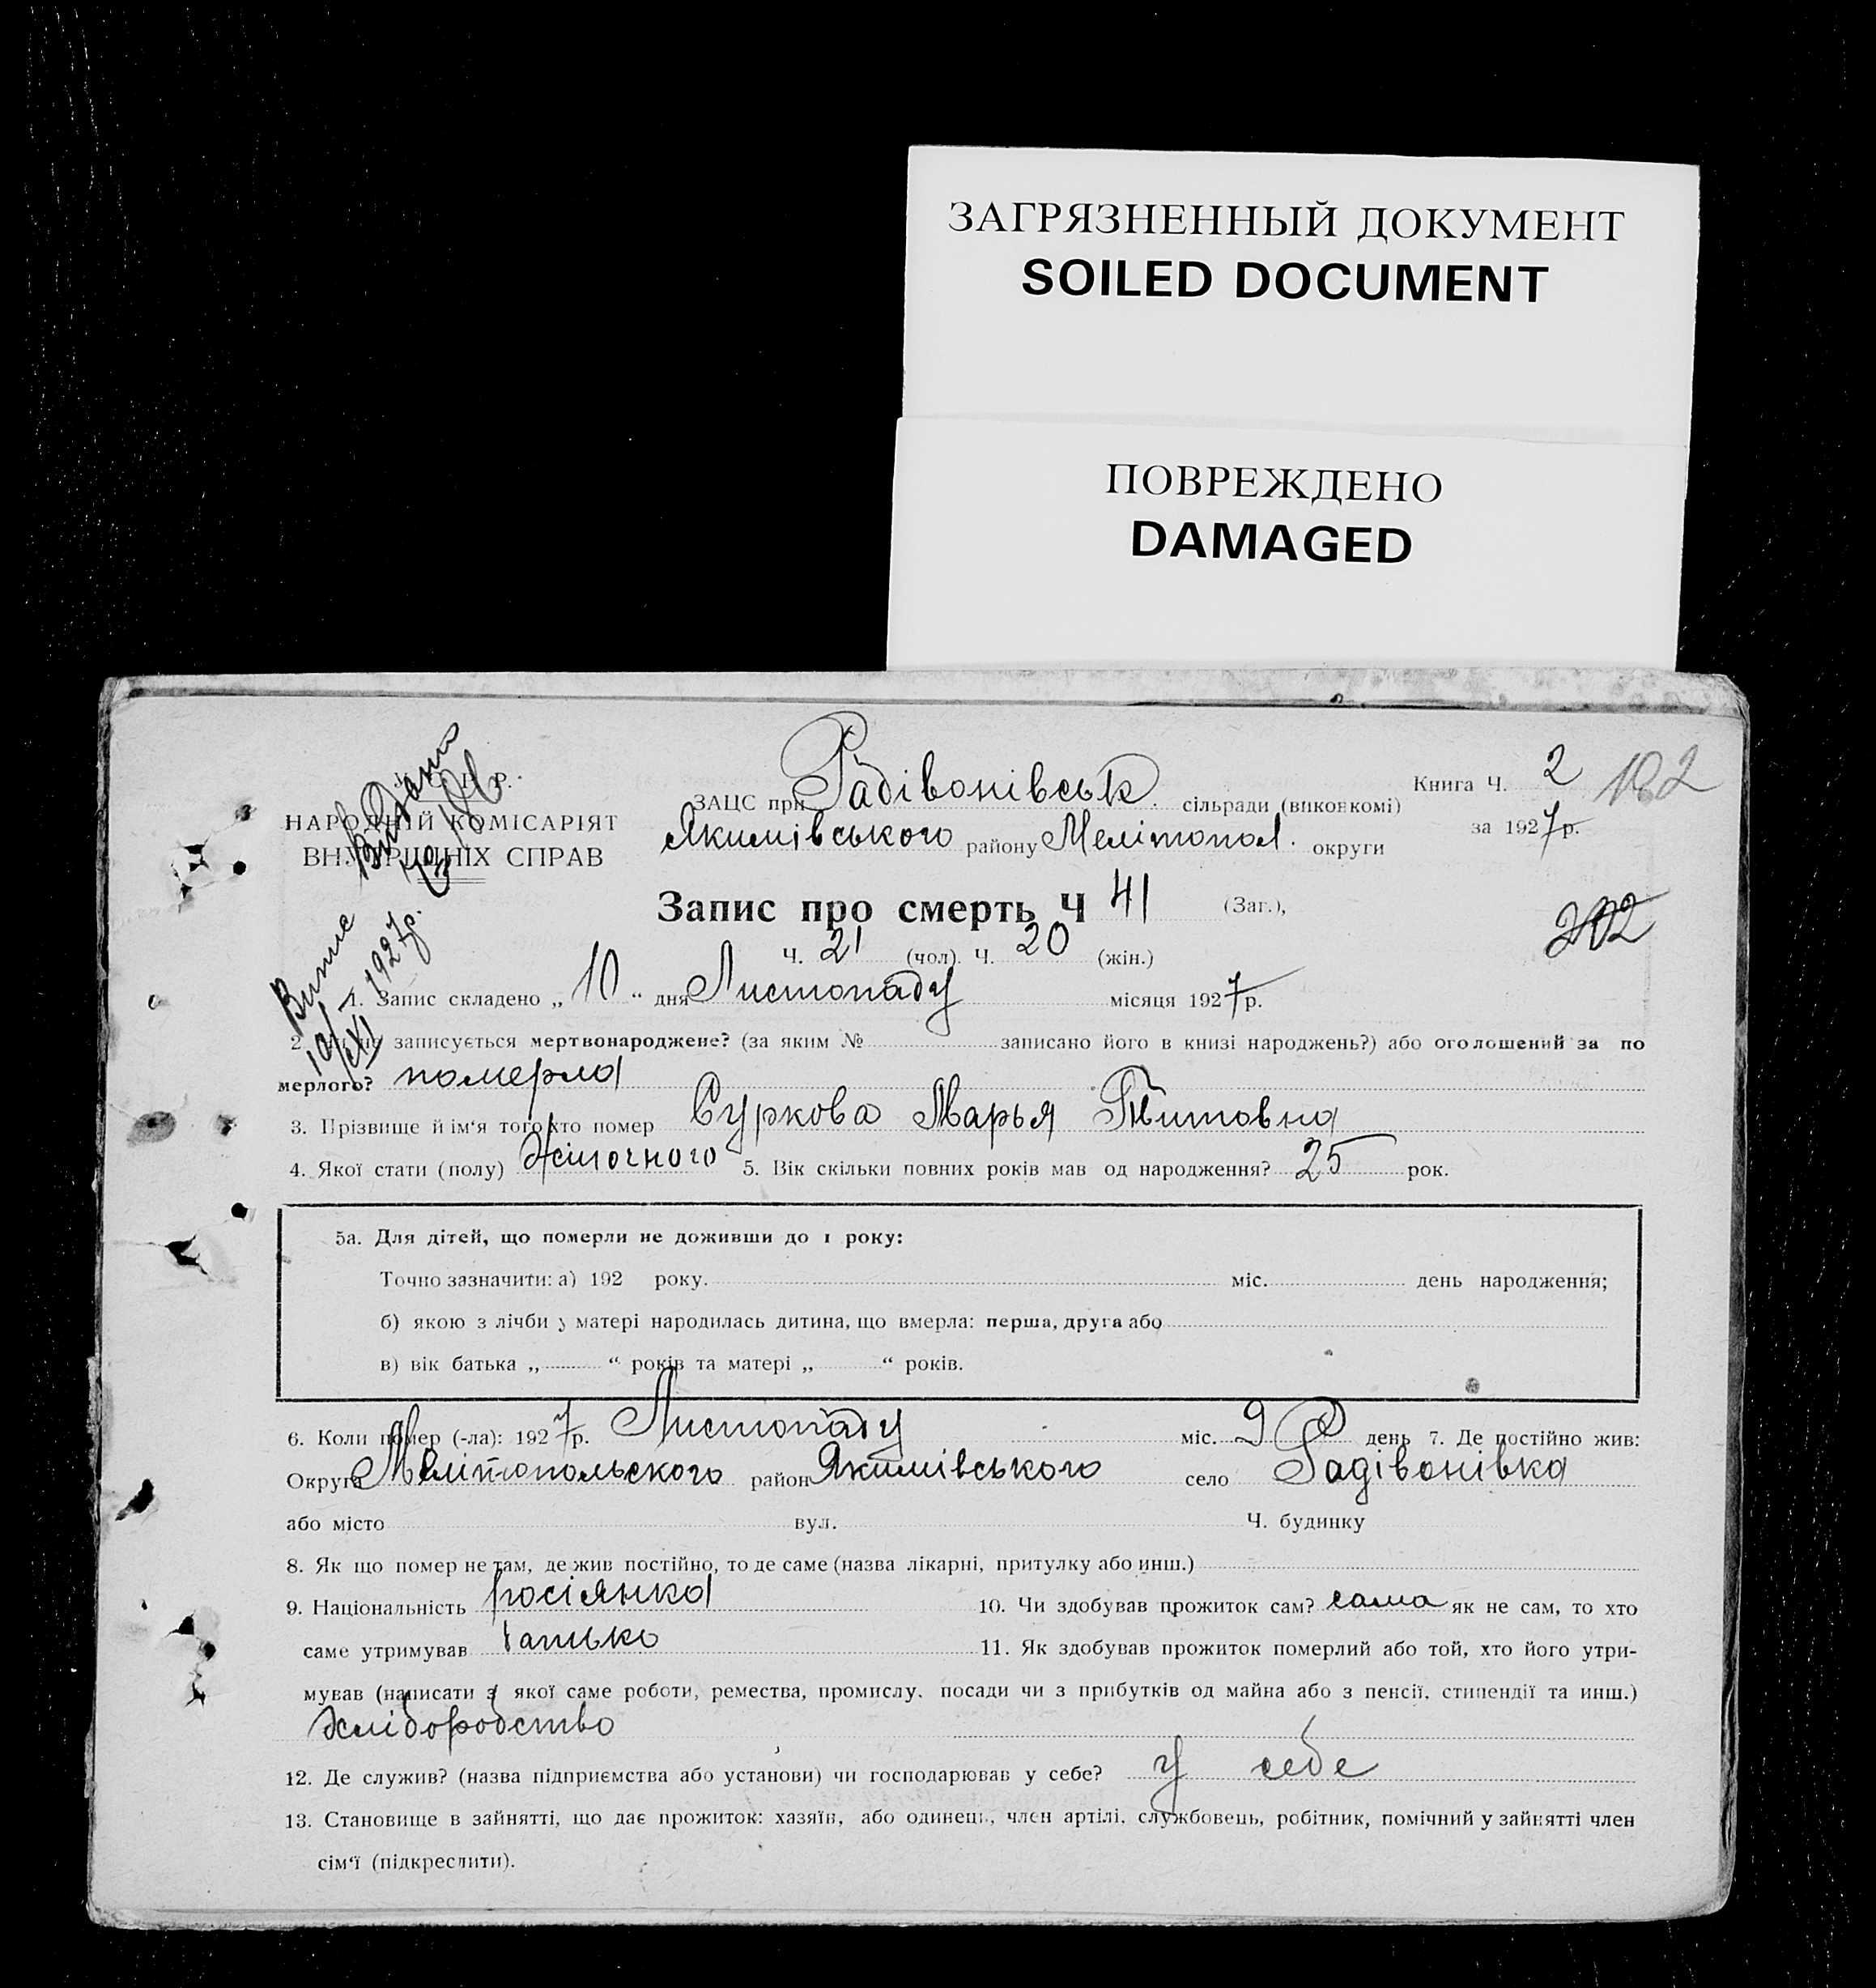 ЗАГРЯЗНЕННЫЙ ДОКУМЕНТ
SOILED DOCUMENT
ПОВРЕЖДЕНО
DAMAGED
НАРОДНІЙ КОМІСАРІЯТ
ВНУТРІШНІХ СПРАВ
Видано
Витяг
10/XI 1927р.
ЗАЦС при Радівонівськ. сільради (виконкомі)
Якимівського району Мелітопол. округи
Книга Ч. 2
182
за 1927р.
Запис про смерть Ч 41 (Заг.),
202
Ч. 21 (чол). Ч. 20 (жін.)
1. Запис складено „10“ дня Листопаду місяця 1927р.
2. записується мертвонароджене? (за яким № записано його в книзі народжень?) або оголошений за по
мерлого? померла
3. Прізвище й ім‘я того хто помер Суркова Марья Титовна
4. Якої стати (полу) Жіночного 5. Вік скільки повних років мав од народження? 25 рок.
5а. Для дітей, що померли не доживши до 1 року:
Точно зазначити: а) 192 року. міс. день народження;
б) якою з лічби у матері народилась дитина, що вмерла: перша, друга або
в) вік батька „ “ років та матері „ “ років.
6. Коли помер (-ла): 1927р. Листопаду міс. 9 день 7. Де постійно жив:
Округа Мелітопольского район Якимівського село Радівонівка
або місто вул. Ч. будинку
8. Як що помер не там, де жив постійно, то де саме (назва лікарні, притулку або инш.)
9. Національність росіянка 10. Чи здобував прожиток сам? сама як не сам, то хто
саме утримував батько 11. Як здобував прожиток померлий або той, хто його утри-
мував (написати з якої саме роботи, ремества, промислу, посади чи з прибутків од майна або з пенсії, стипендії та инш.)
Хліборобство
12. Де служив? (назва підприємства або установи) чи господарював у себе? у себе
13. Становище в зайнятті, що дає прожиток: хазяїн, або одинець, член артілі, службовець, робітник, помічний у зайнятті член
сім‘ї (підкреслити).